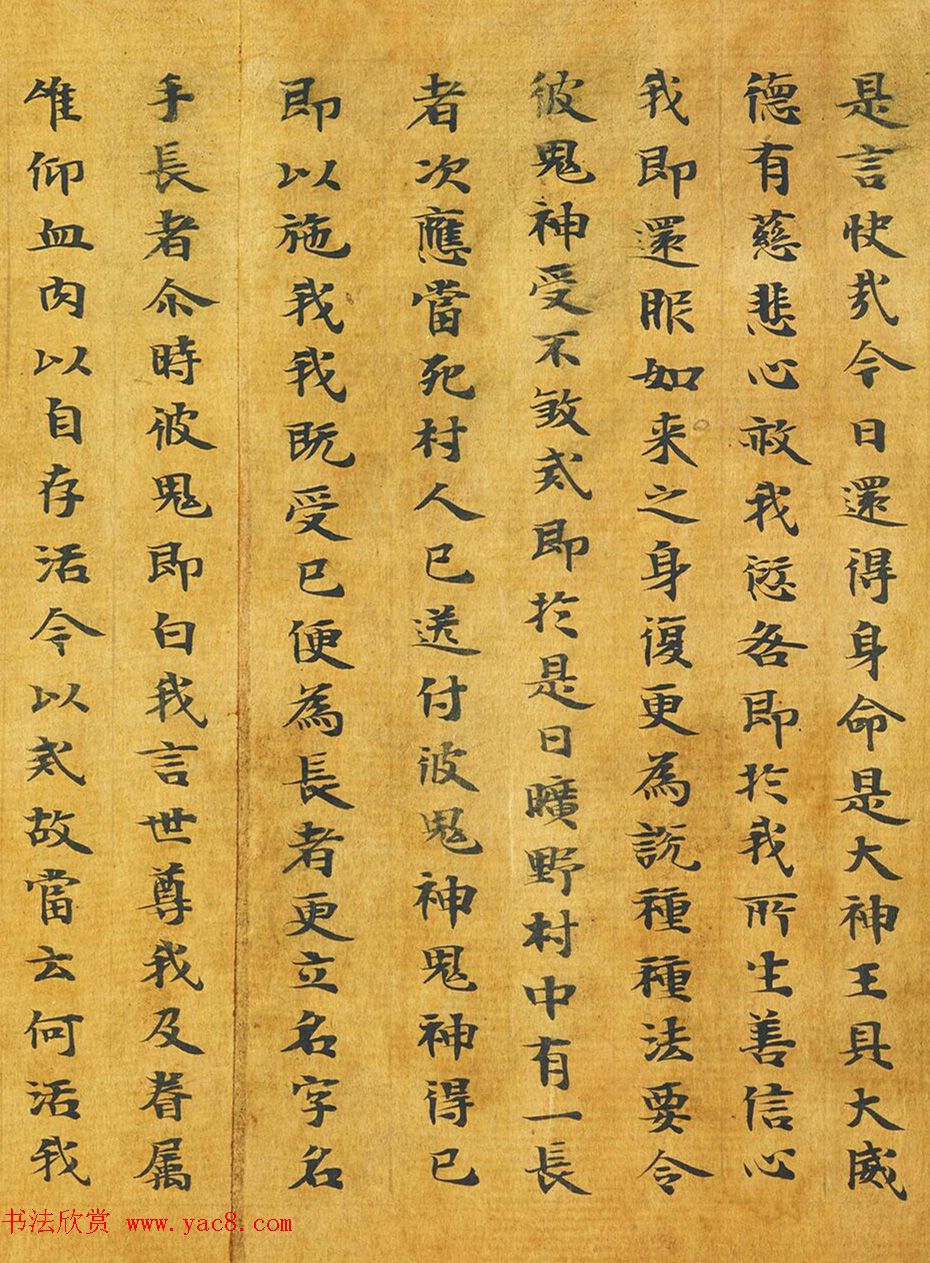 是言快哉今日還得身命是大神王具大威
德有慈悲心赦我愆咎即於我所生善信心
我即還服如来之身復更為説種種法要令
彼鬼神受不煞戒即於是日曠野村中有一長
者次應當死村人已送付彼鬼神鬼神得已
即以施我我既受已便為長者更立名字名
手長者尒時彼鬼即白我言世尊我及眷属
唯仰血肉以自存活今以戒故當云何活我
书法欣赏 www.yac8.com